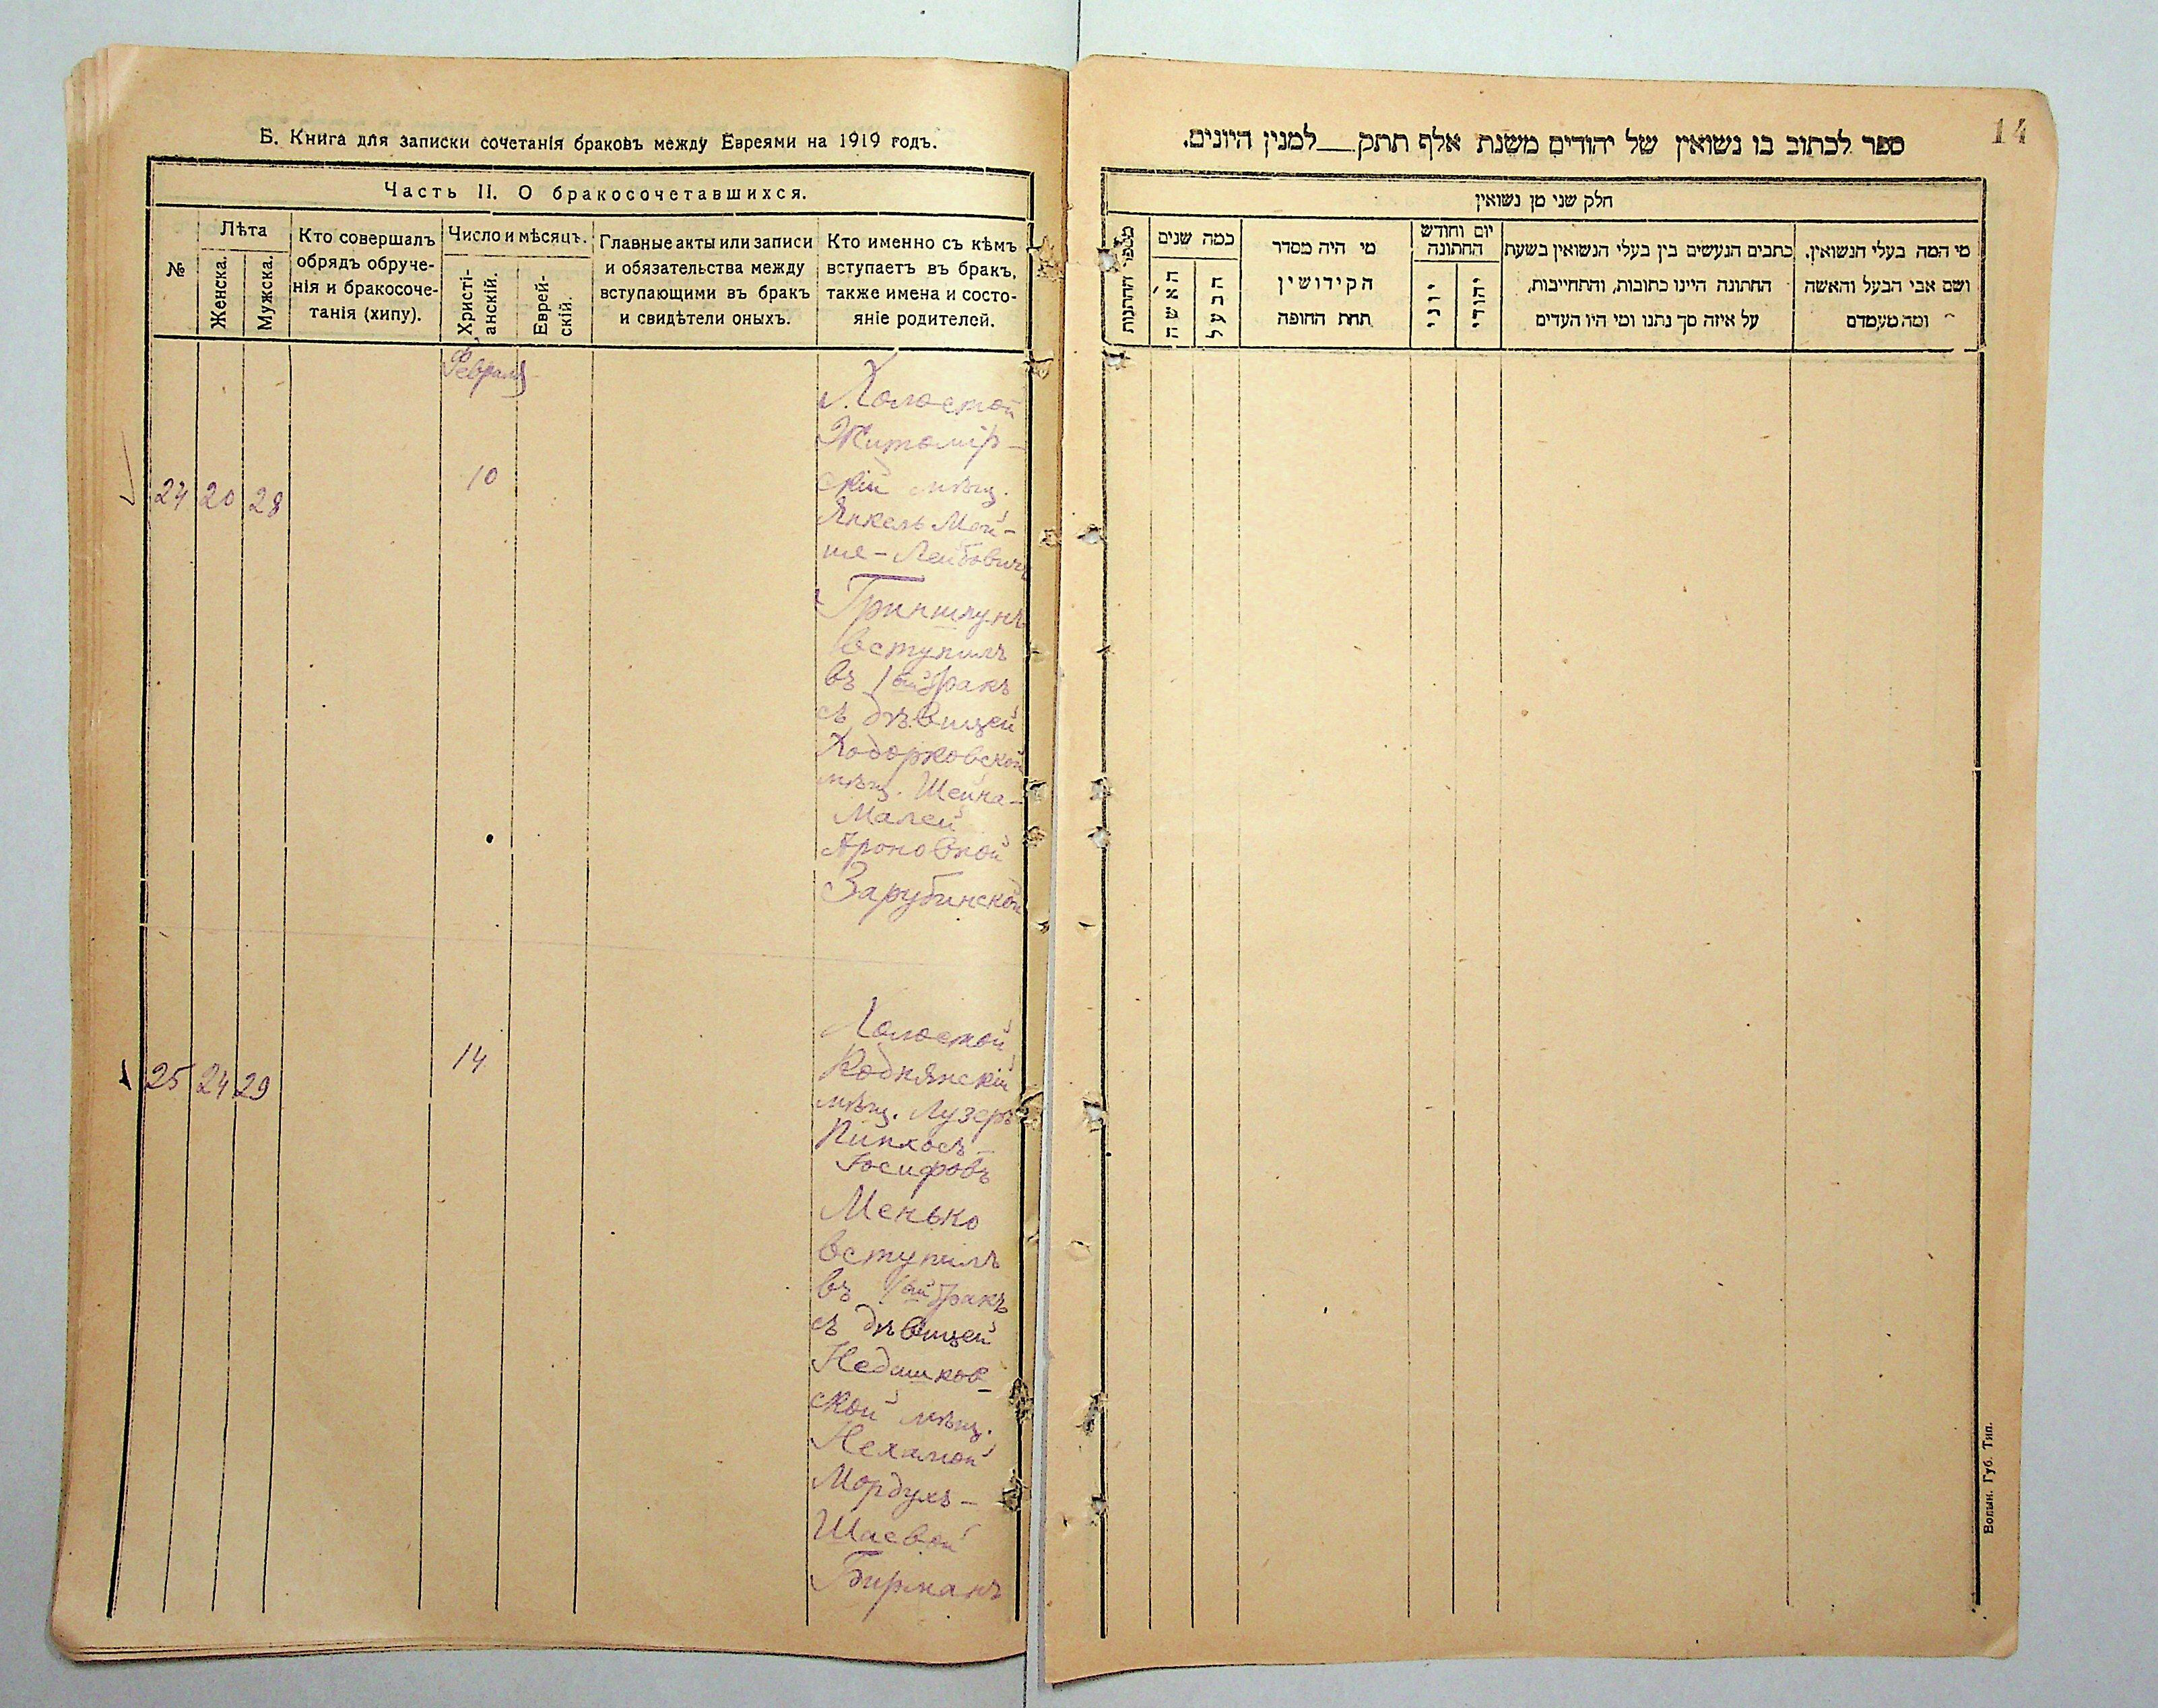 Б. Книга для записки сочетанія браковъ между Евреями на 1919 годъ.
Часть II. О бракосочетавшихся.
№
Лѣта
Женска.
Мужска.
Кто совершалъ
обрядъ обруче-
нія и бракосоче-
танія (хипу).
Число и мѣсяцъ.
Христі-
анскій.
Еврей-
скій.
Главные акты или записи
и обязательства между
вступающими въ бракъ
и свидѣтели оныхъ.
Кто именно съ кѣмъ
вступаетъ въ бракъ,
также имена и состо-
яніе родителей.
Февраля
24 20 28
10
Холостой
Житомір-
скій мѣщ.
Янкель Мой-
ше-Лейбовичъ
Гриншпунъ
вступилъ
въ 1ый бракъ
съ дѣвицей
Ходорковской
мѣщ. Шейна-
Малей
Ароновной
Зарубинской
25 24 29
14
Холостой
Роднянскій
мѣщ. Лузеръ
Пинхосъ-
Іосифовъ
Менько
вступилъ
въ 1ый бракъ
съ дѣвицей
Недашков-
ской мѣщ.
Нехамой
Мордухъ-
Шаевой
Бирманъ
14
ספר לכתוב בו נשואין של יהודים משנת אלף תתק___למנין היונים.
חלק שני מן נשואין
מספר החתונות
כמה שנים
האשה
הבעל
מי היה מסדר
הקידושין
תחת החופה
יום וחודש
החתונה
יוני
יהודי
כתבים הנעשים בין בעלי הנשואין בשעת
החתונה היינו כתובות, והתחייבות,
על איזה סך נתנו ומי היו העדים
מי המה בעלי הנשואין.
ושם אבי הבעל והאשה
ומה מעמדם
Волын. Губ. Тип.